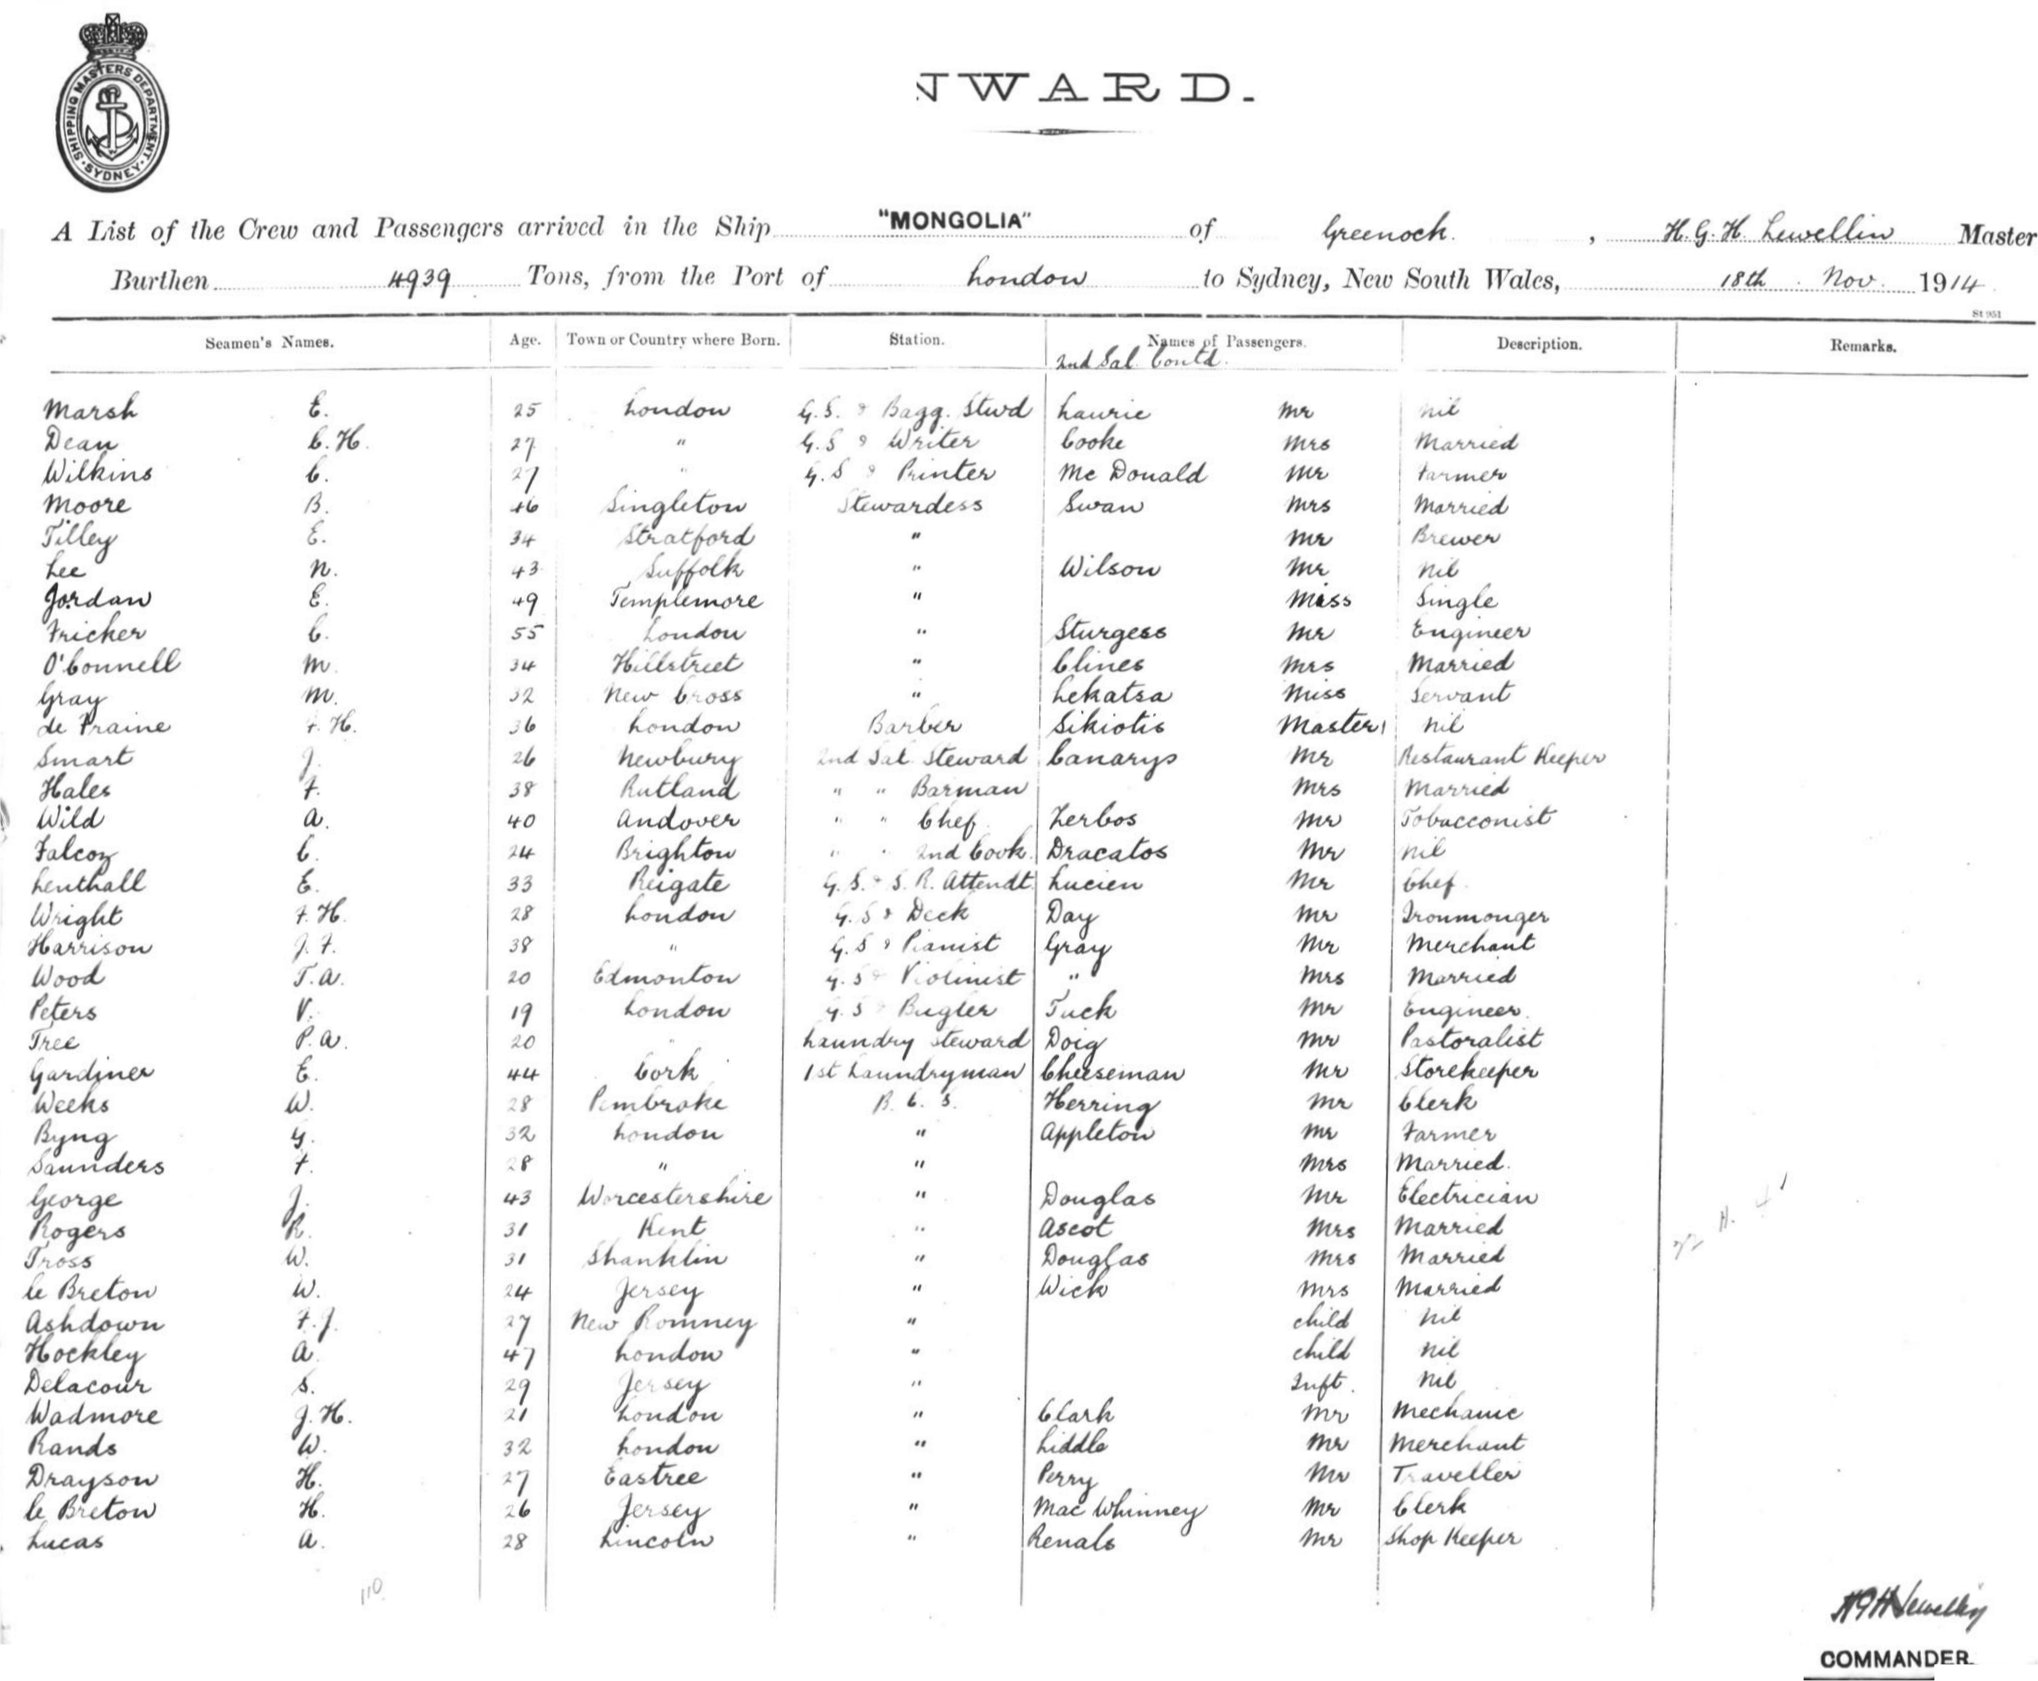 SHIPPING MASTERS DEPARTMENT · SYDNEY ·
NWARD.
A List of the Crew and Passengers arrived in the Ship "MONGOLIA" of Greenock. , H. G. H. Lewellin Master
Burthen 4939 Tons, from the Port of London to Sydney, New South Wales, 18th Nov. 1914
St 951
Seamen's Names. Age. Town or Country where Born. Station. Names of Passengers. Description. Remarks.
2nd Sal. Contd.
Marsh E. 25 London G.S. & Bagg. Stwd Laurie Mr Nil
Dean C. H. 27 " G.S & Writer Cooke Mrs Married
Wilkins C. 27 " G.S & Printer Mc Donald Mr Farmer
Moore B. 46 Singleton Stewardess Swan Mrs Married
Tilley E. 34 Stratford " Mr Brewer
Lee N. 43 Suffolk " Wilson Mr Nil
Jordan E. 49 Templemore " Miss Single
Fricker C. 55 London " Sturgess Mr Engineer
O'Connell M. 34 Hillstreet " Clines Mrs Married
Gray M. 32 New Cross " Lekatsa Miss Servant
de Fraine F. H. 36 London Barber Sikiotis Master Nil
Smart J. 26 Newbury 2nd Sal Steward Canarys Mr Restaurant Keeper
Hales F. 38 Rutland " " Barman Mrs Married
Wild A. 40 Andover " " Chef Zerbos Mr Tobacconist
Falcoz C. 24 Brighton " " 2nd Cook Dracatos Mr Nil
Lenthall E. 33 Reigate G.S. & S. R. Attendt. Lucien Mr Chef
Wright F. H. 28 London G.S & Deck Day Mr Ironmonger
Harrison J. F. 38 " G.S & Pianist Gray Mr Merchant
Wood T. A. 20 Edmonton G.S & Violinist " Mrs Married
Peters V. 19 London G.S & Bugler Tuck Mr Engineer.
Tree P. A. 20 " Laundry Steward Doig Mr Pastoralist
Gardiner E. 44 Cork 1st Laundryman Cheeseman Mr Storekeeper
Weeks W. 28 Pembroke B. C. S. Herring Mr Clerk
Byng G. 32 London " Appleton Mr Farmer
Saunders F. 28 " " Mrs Married.
George J. 43 Worcestershire " Douglas Mr Electrician
Rogers R. 31 Kent " Ascot Mrs Married
Tross W. 31 Shanklin " Douglas Mrs Married
le Breton W. 24 Jersey " Wick Mrs Married
Ashdown F. J. 27 New Romney " child Nil
Hockley A. 47 London " child Nil
Delacour S. 29 Jersey " Inft. Nil
Wadmore J. H. 21 London " Clark Mr Mechanic
Rands W. 32 London " Liddle Mr Merchant
Drayson H. 27 Eastree " Perry Mr Traveller
le Breton H. 26 Jersey " Mac Whinney Mr Clerk
Lucas A. 28 Lincoln " Renals Mr Shop Keeper
110
H G H Lewellin
COMMANDER